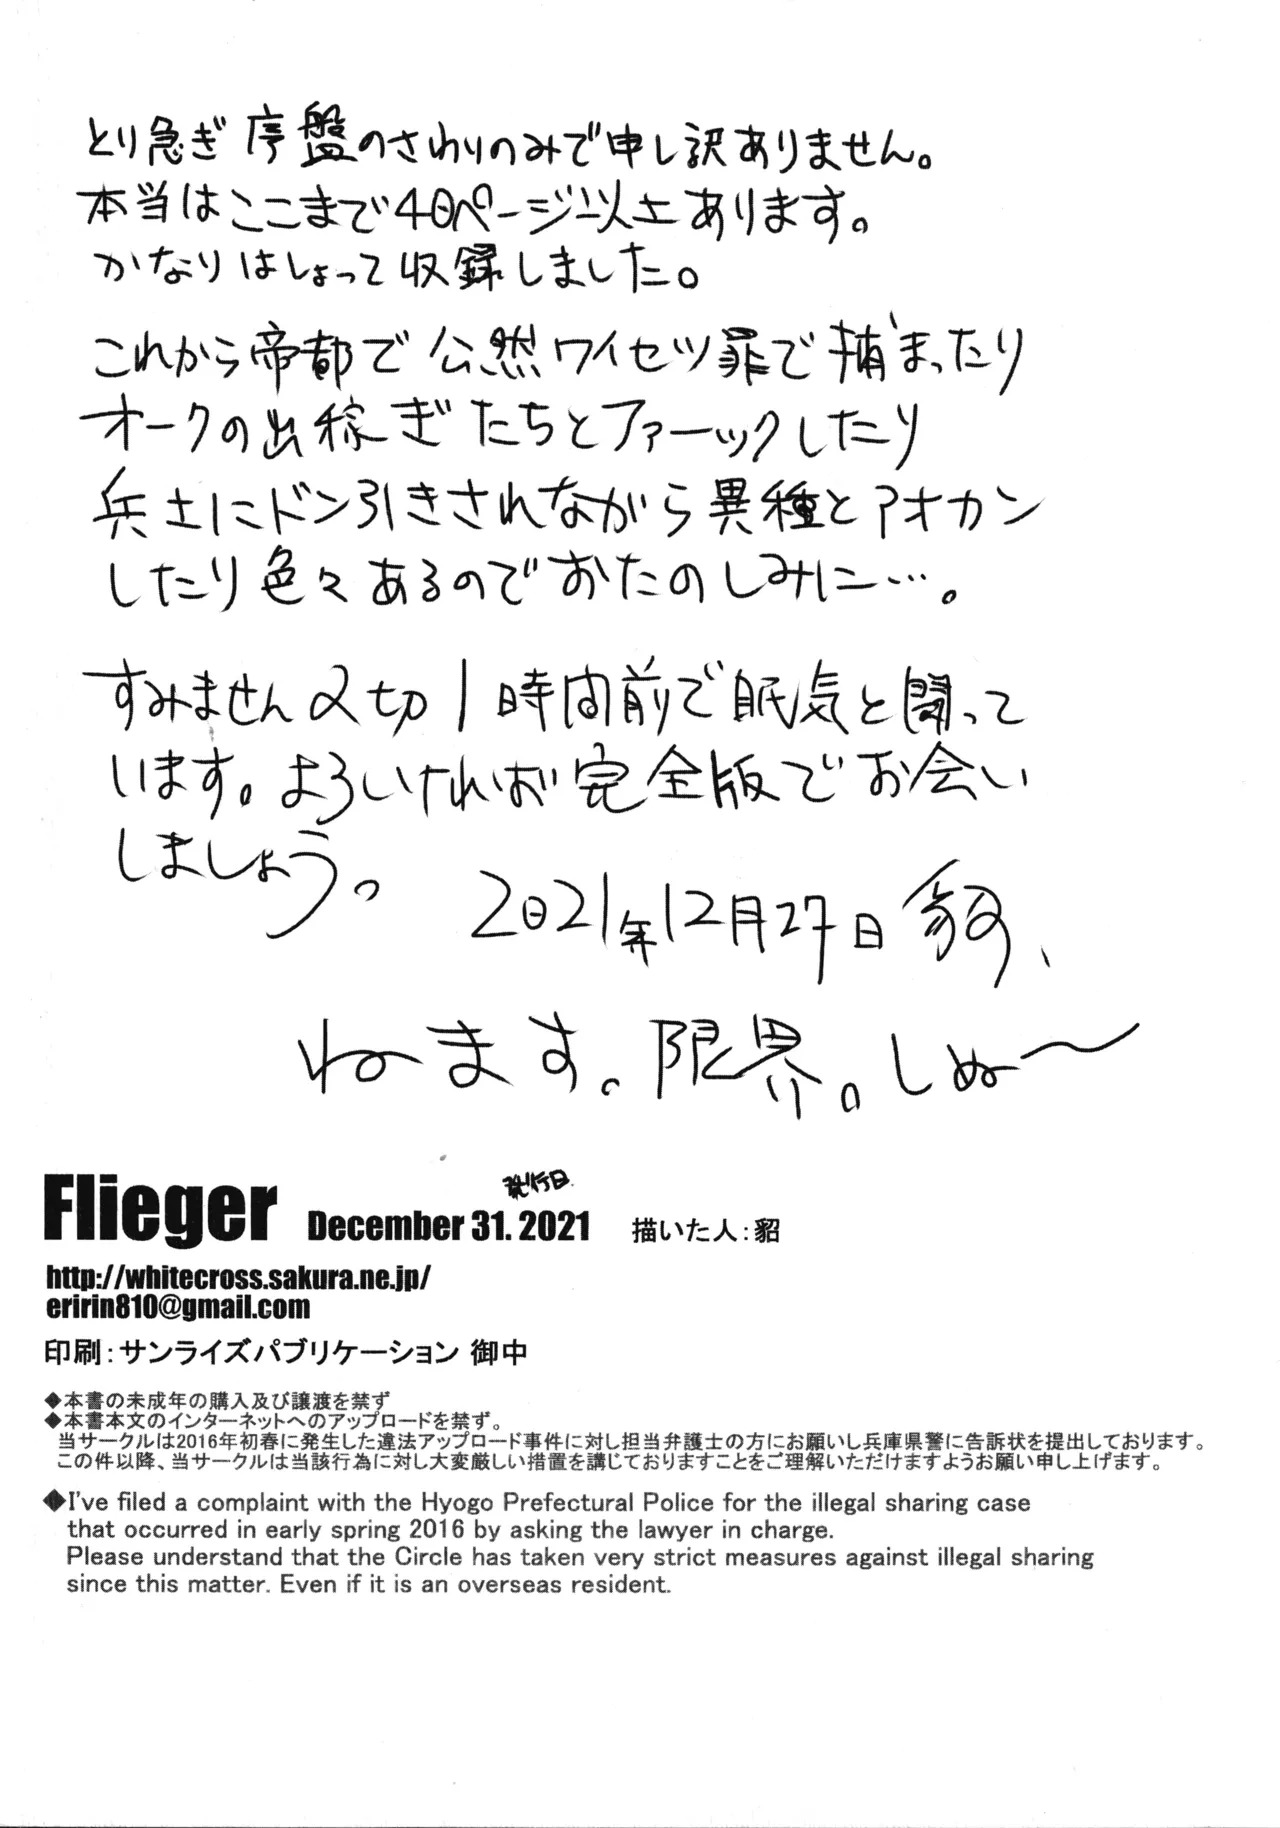 とり急ぎ序盤のさわりのみで申し訳ありません。
本当はここまで40ページ以上あります。
かなりはしょって収録しました。
これから帝都で公然ワイセツ罪で捕まったり
オークの出稼ぎたちとファーックしたり
兵士にドン引きされながら異種とアオカン
したり色々あるのでおたのしみに…。
すみません〆切1時間前で眠気と闘って
います。よろしければ完全版でお会い
しましょう。
2021年12月27日 貂、
ねます。限界。しぬ〜
発行日
Flieger December 31. 2021 描いた人：貂
http://whitecross.sakura.ne.jp/
eririn810@gmail.com
印刷：サンライズパブリケーション 御中
◆本書の未成年の購入及び譲渡を禁ず
◆本書本文のインターネットへのアップロードを禁ず。
当サークルは2016年初春に発生した違法アップロード事件に対し担当弁護士の方にお願いし兵庫県警に告訴状を提出しております。
この件以降、当サークルは当該行為に対し大変厳しい措置を講じておりますことをご理解いただけますようお願い申し上げます。
◆I've filed a complaint with the Hyogo Prefectural Police for the illegal sharing case
that occurred in early spring 2016 by asking the lawyer in charge.
Please understand that the Circle has taken very strict measures against illegal sharing
since this matter. Even if it is an overseas resident.